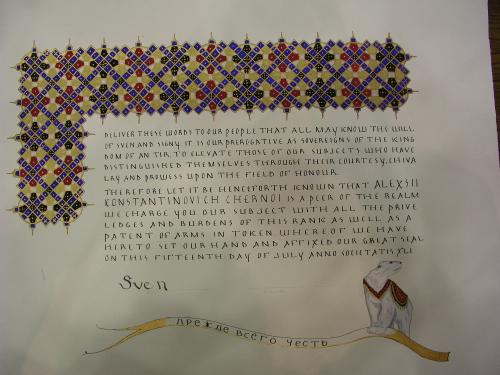 DELIVER THESE WORDS TO OUR PEOPLE THAT ALL MAY KNOW THE WILL
OF SVEN AND SIGNY. IT IS OUR PREROGATIVE AS SOVEREIGNS OF THE KING
DOM OF AN TIR, TO ELEVATE THOSE OF OUR SUBJECTS WHO HAVE
DISTINGUISHED THEMSELVES THROUGH THEIR COURTESY, CHIVA
LRY AND PROWESS UPON THE FIELD OF HONOUR.
THEREFORE LET IT BE HENCEFORTH KNOWN THAT ALEXSII
KONSTANTINOVICH CHERNOI IS A PEER OF THE REALM
WE CHARGE YOU OUR SUBJECT WITH ALL THE PRIVE
LEDGES AND BURDENS OF THIS RANK AS WELL AS A
PATENT OF ARMS. IN TOKEN WHEREOF WE HAVE
HERE TO SET OUR HAND AND AFFIXED OUR GREAT SEAL
ON THIS FIFTEENTH DAY OF JULY ANNO SOCIETATIS XLI
Sven
ПРЕЖДЕ ВСЕГО ЧЕСТЬ